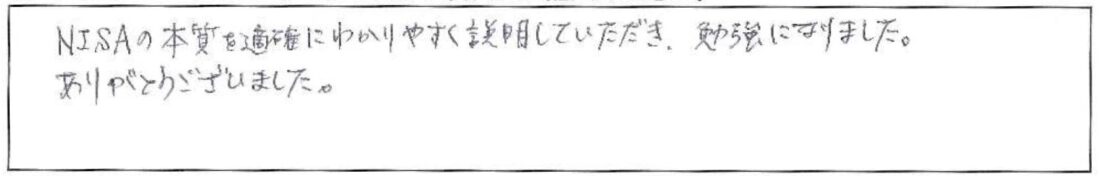 NISAの本質を適確にわかりやすく説明していただき、勉強になりました。
ありがとうございました。